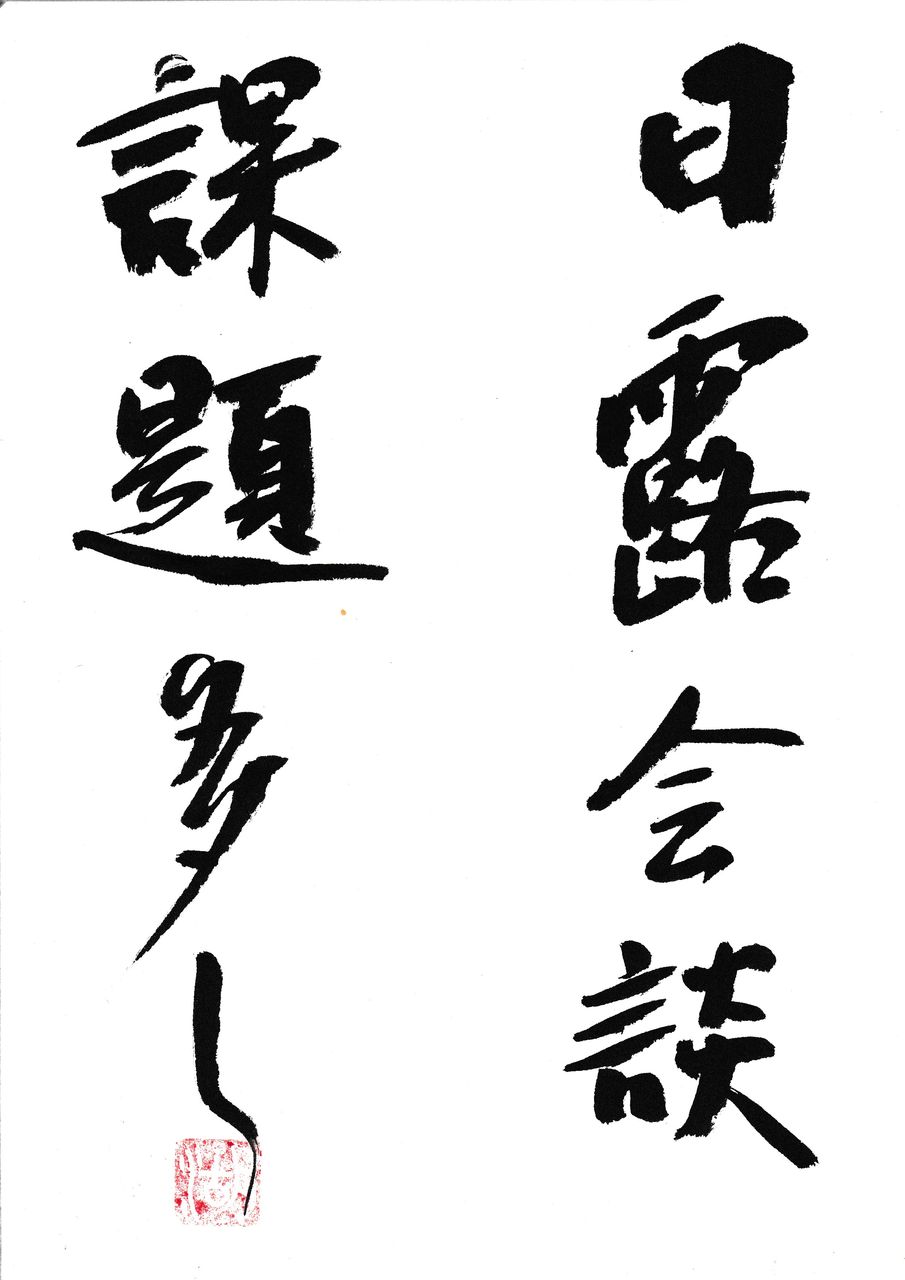 日露会談
課題多し